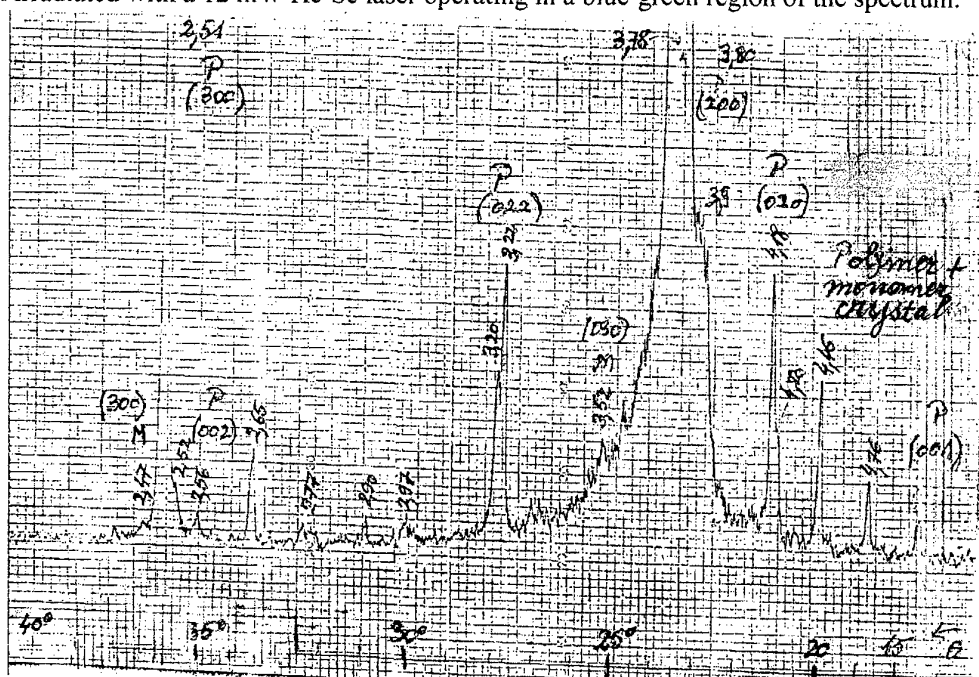 irradiated with a 12 mW He-Se laser operating in a blue-green region of the spectrum.
2,51
P
(300)
3,78
3,80
(200)
3,9
P
(022)
3,22
3,20
P
(020)
4,18
4,23
Polymer +
monomer
crystal
4,46
(030)
M
3,52
(300)
M
2,47
2,52
P
(002)
2,56
2,65
2,77
2,90
2,97
4,76
P
(001)
40°
35°
30°
25°
20
15
←
θ